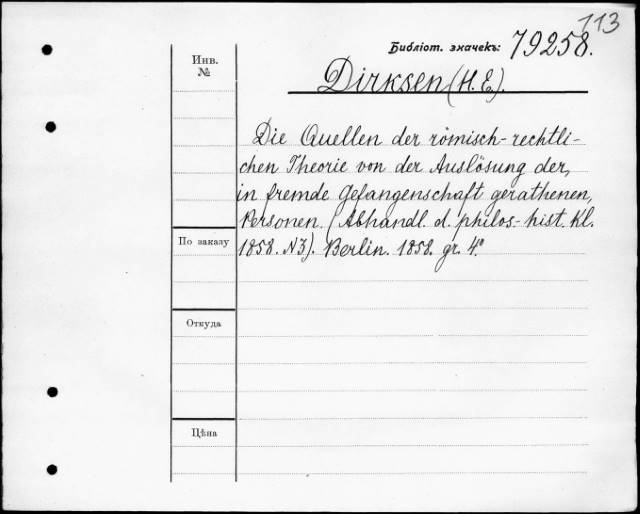 113
Библіот. значекъ: 79258.
Инв.
№
Dirksen (H. E.).
Die Quellen der römisch-rechtli-
chen Theorie von der Auslösung der,
in fremde Gefangenschaft gerathenen,
Personen. (Abhandl. d. philos-hist. Kl.
1858. N3). Berlin. 1858. gr. 4°
По заказу
Откуда
Цѣна